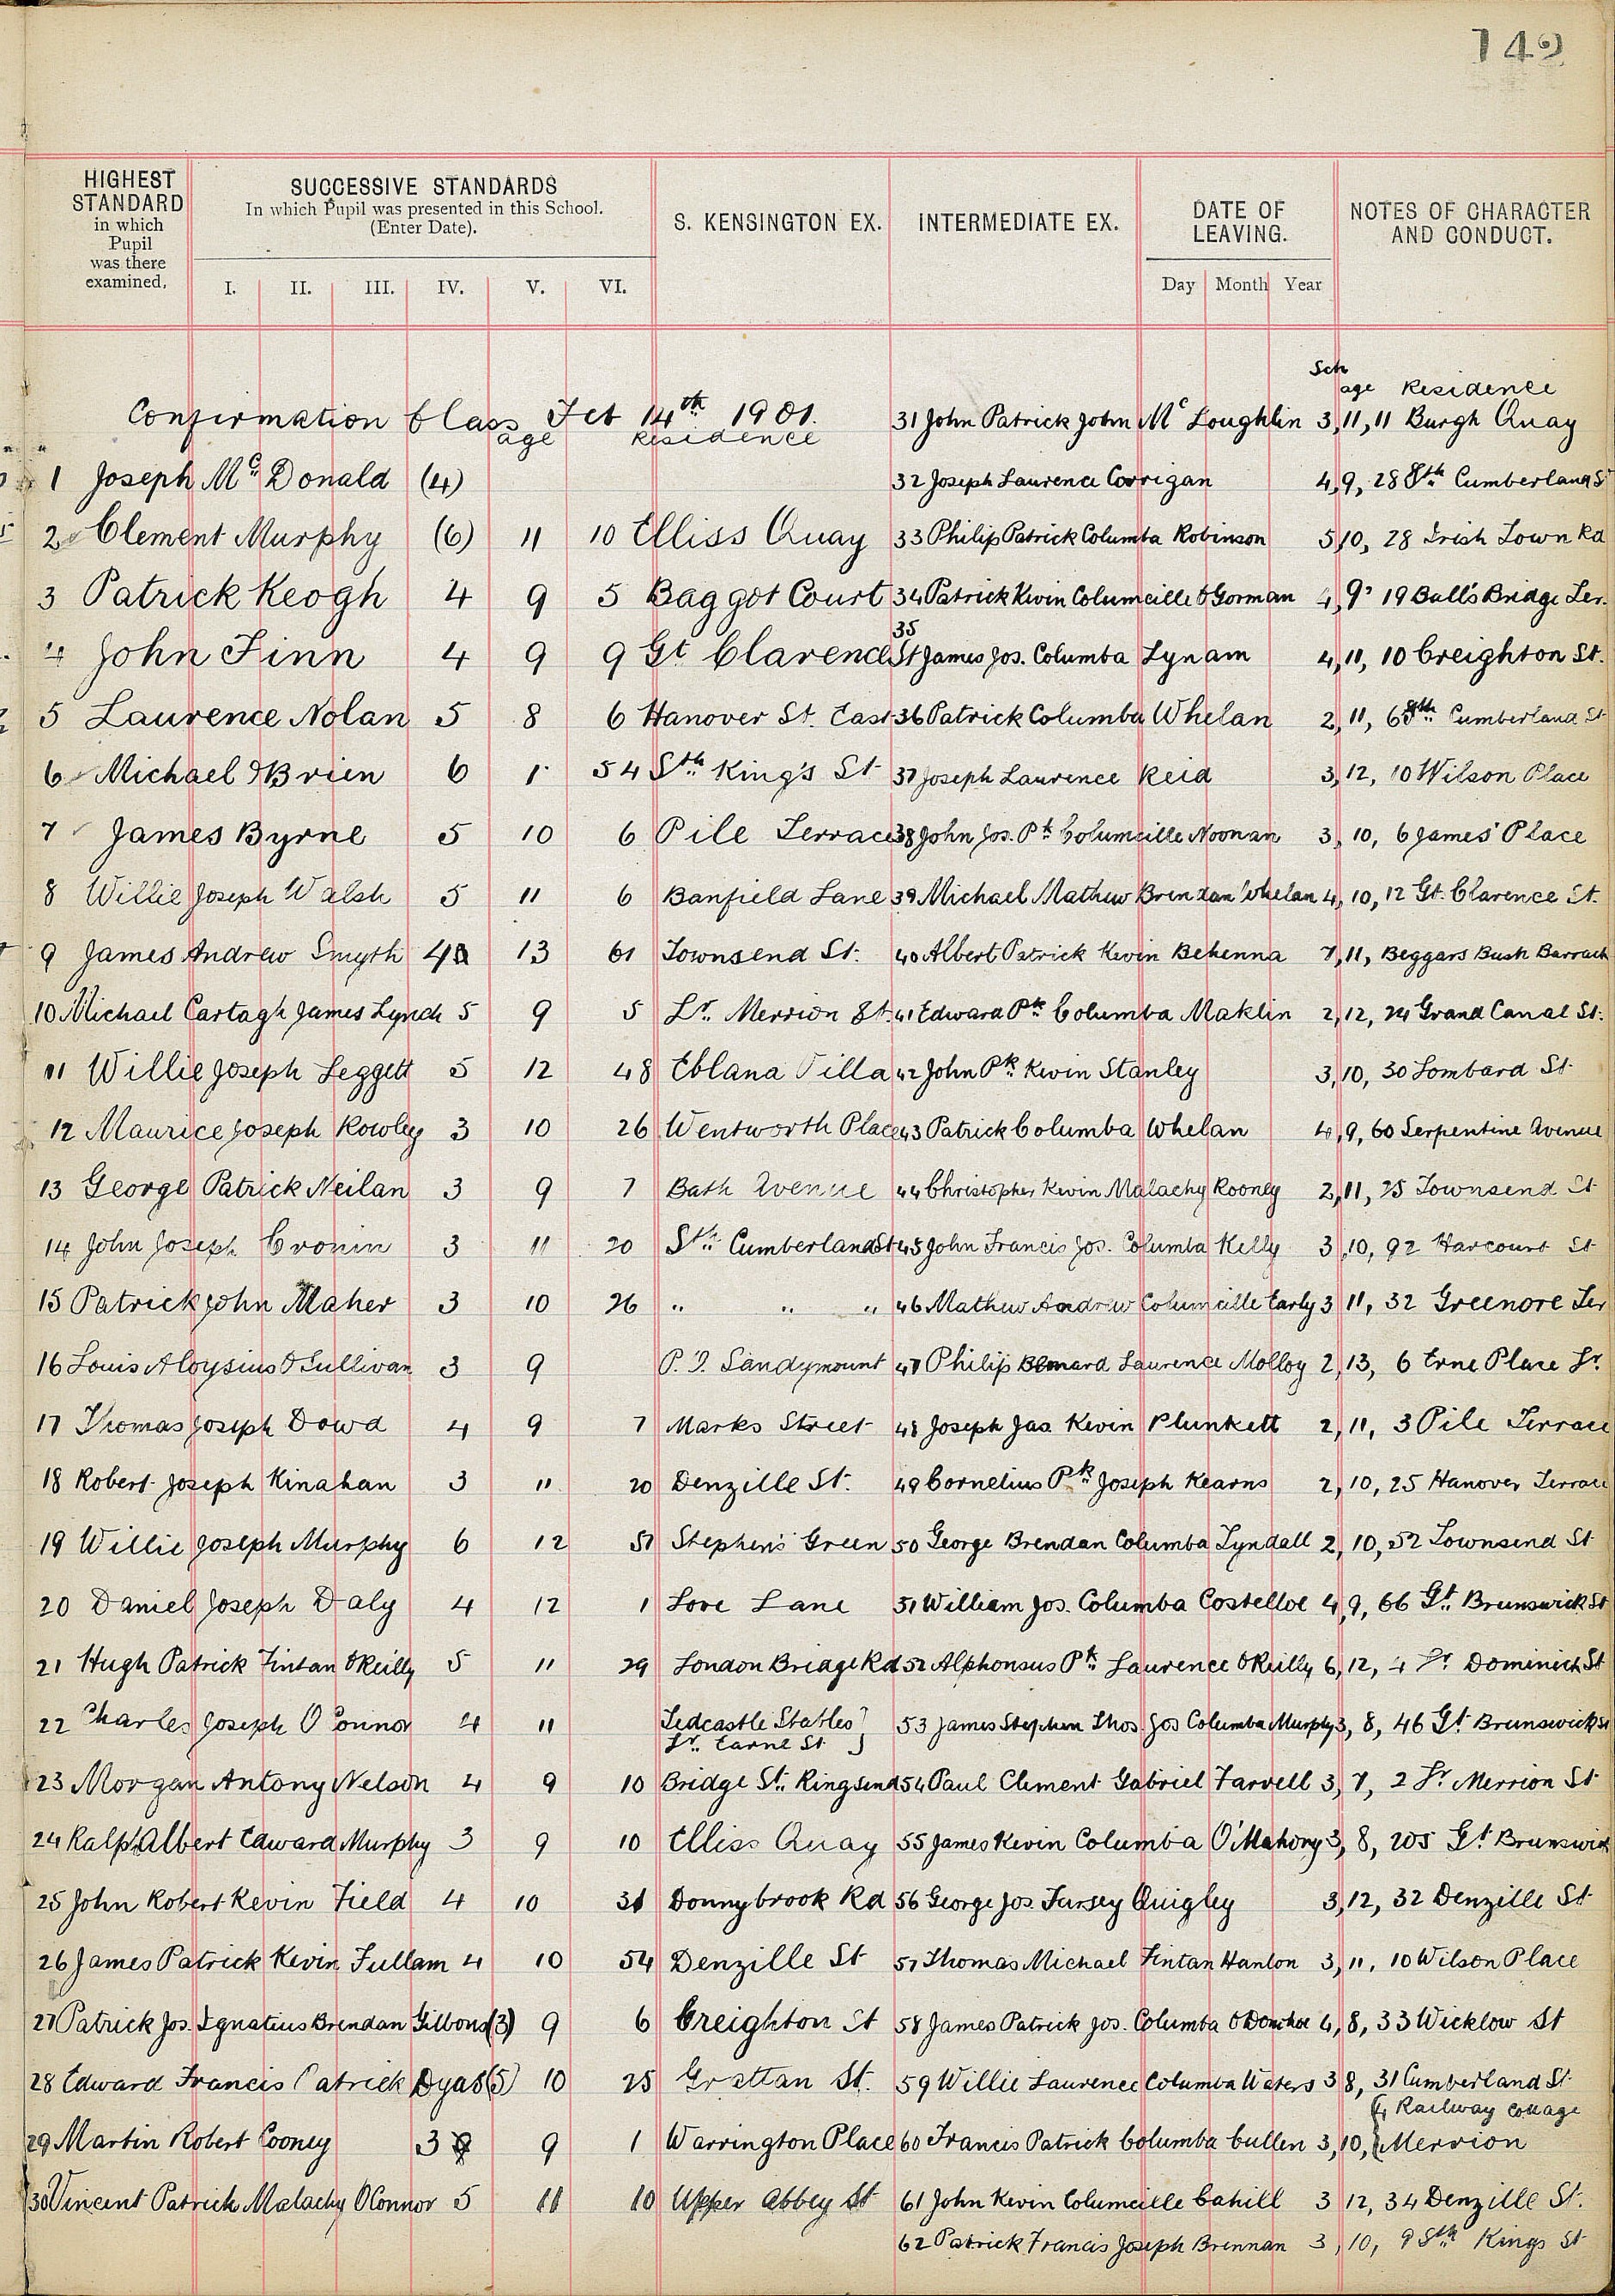 142
HIGHEST STANDARD in which Pupil was there examined.
SUCCESSIVE STANDARDS
In which Pupil was presented in this School.
(Enter Date).
I. II. III. IV. V. VI.
S. KENSINGTON EX.
INTERMEDIATE EX.
DATE OF LEAVING.
Day Month Year
NOTES OF CHARACTER AND CONDUCT.
Confirmation Class Feb 14th 1901.
age Residence
1 Joseph Mc Donald (4)
2 Clement Murphy (6) 11 10 Elliss Quay
3 Patrick Keogh 4 9 5 Baggot Court
4 John Finn 4 9 9 Gt Clarence St
5 Laurence Nolan 5 8 6 Hanover St. East
6 Michael O'Brien 6 1 54 Sth King's St
7 James Byrne 5 10 6 Pile Terrace
8 Willie Joseph Walsh 5 11 6 Banfield Lane
9 James Andrew Smyth 4 13 61 Townsend St.
10 Michael Cartagh James Lynch 5 9 5 Lr. Merrion St.
11 Willie Joseph Leggett 5 12 48 Eblana Villa
12 Maurice Joseph Rowley 3 10 26 Wentworth Place
13 George Patrick Neilan 3 9 7 Bath Avenue
14 John Joseph Cronin 3 11 20 Sth Cumberland St
15 Patrick John Maher 3 10 26 " " "
16 Louis Aloysius O'Sullivan 3 9 P. O. Sandymount
17 Thomas Joseph Dowd 4 9 7 Marks Street
18 Robert Joseph Kinahan 3 11 20 Denzille St.
19 Willie Joseph Murphy 6 12 51 Stephen's Green
20 Daniel Joseph Daly 4 12 1 Love Lane
21 Hugh Patrick Fintan O'Reilly 5 11 29 London Bridge Rd
22 Charles Joseph O'Connor 4 11 Tedcastle Stables
Lr. Earne St
23 Morgan Antony Nelson 4 9 10 Bridge St. Ringsend
24 Ralph Albert Edward Murphy 3 9 10 Elliss Quay
25 John Robert Kevin Field 4 10 31 Donnybrook Rd
26 James Patrick Kevin Fullam 4 10 54 Denzille St
27 Patrick Jos. Ignatius Brendan Gibbons (3) 9 6 Creighton St
28 Edward Francis Patrick Dyas (5) 10 25 Grattan St.
29 Martin Robert Cooney 3 9 1 Warrington Place
30 Vincent Patrick Malachy O'Connor 5 11 10 Upper Abbey St
Sch age Residence
31 John Patrick John Mc Loughlin 3, 11, 11 Burgh Quay
32 Joseph Laurence Corrigan 4, 9, 28 Sth Cumberland St
33 Philip Patrick Columba Robinson 5, 10, 28 Irish Town Rd
34 Patrick Kevin Columcille O'Gorman 4, 9, 19 Ball's Bridge Ter.
35 James Jos. Columba Lynam 4, 11, 10 Creighton St.
36 Patrick Columba Whelan 2, 11, 6 Sth Cumberland St
37 Joseph Laurence Reid 3, 12, 10 Wilson Place
38 John Jos. Pk Columcille Noonan 3, 10, 6 James' Place
39 Michael Mathew Brendan Whelan 4, 10, 12 Gt. Clarence St.
40 Albert Patrick Kevin Behenna 7, 11, Beggars Bush Barrack
41 Edward Pk Columba Maklin 2, 12, 24 Grand Canal St.
42 John Pk Kevin Stanley 3, 10, 30 Lombard St.
43 Patrick Columba Whelan 4, 9, 60 Serpentine Avenue
44 Christopher Kevin Malachy Rooney 2, 11, 25 Townsend St
45 John Francis Jos. Columba Kelly 3, 10, 92 Harcourt St
46 Mathew Andrew Columcille Early 3 11, 32 Greenore Ter
47 Philip Bernard Laurence Molloy 2, 13, 6 Erne Place Lr.
48 Joseph Jas. Kevin Plunkett 2, 11, 3 Pile Terrace
49 Cornelius Pk Joseph Kearns 2, 10, 25 Hanover Terrace
50 George Brendan Columba Tyndall 2, 10, 52 Townsend St
51 William Jos. Columba Costelloe 4, 9, 66 Gt. Brunswick St
52 Alphonsus Pk Laurence O'Reilly 6, 12, 4 Lr Dominick St
53 James Stephen Thos. Jos Columba Murphy 3, 8, 46 Gt Brunswick St
54 Paul Clement Gabriel Farvell 3, 7, 2 Lr Merrion St
55 James Kevin Columba O'Mahony 3, 8, 205 Gt Brunswick
56 George Jos. Fursey Quigley 3, 12, 32 Denzille St
57 Thomas Michael Fintan Hanlon 3, 11, 10 Wilson Place
58 James Patrick Jos. Columba O'Donohoe 4, 8, 33 Wicklow St
59 Willie Laurence Columba Waters 3 8, 31 Cumberland St
60 Francis Patrick Columba Cullen 3, 10, 4 Railway Cottage
Merrion
61 John Kevin Columcille Cahill 3 12, 34 Denzille St.
62 Patrick Francis Joseph Brennan 3, 10, 9 Sth Kings St